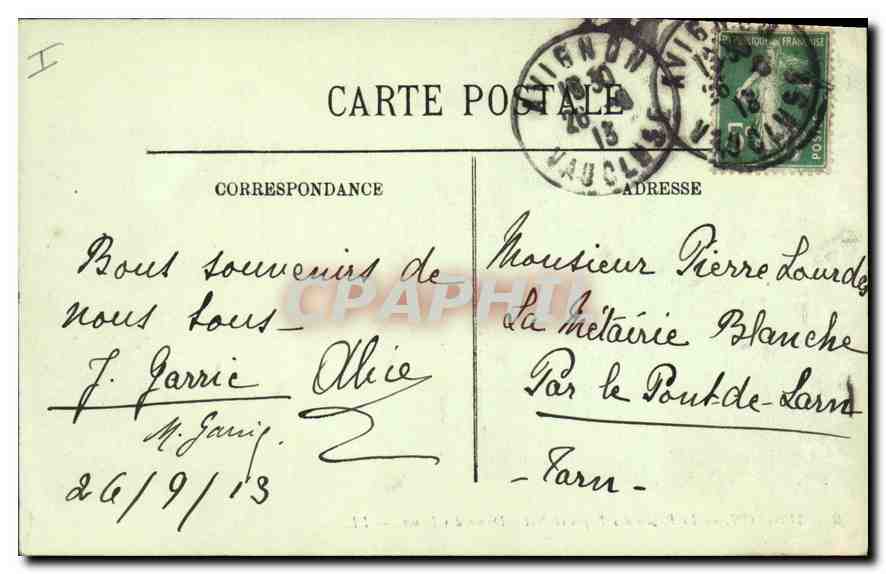 I
CARTE POSTALE
AVIGNON
18 30
26 -9
13
VAUCLUSE
AVIGNON
VAUCLUSE
REPUBLIQUE FRANÇAISE
5
POSTES
CORRESPONDANCE
Bons souvenirs de
nous tous-
J. Garric Alice
M. Garrig.
26/9/13
ADRESSE
Monsieur Pierre Lourdes
La Métairie Blanche
Par le Pont-de-Larn
- Tarn -
CPAPHIL